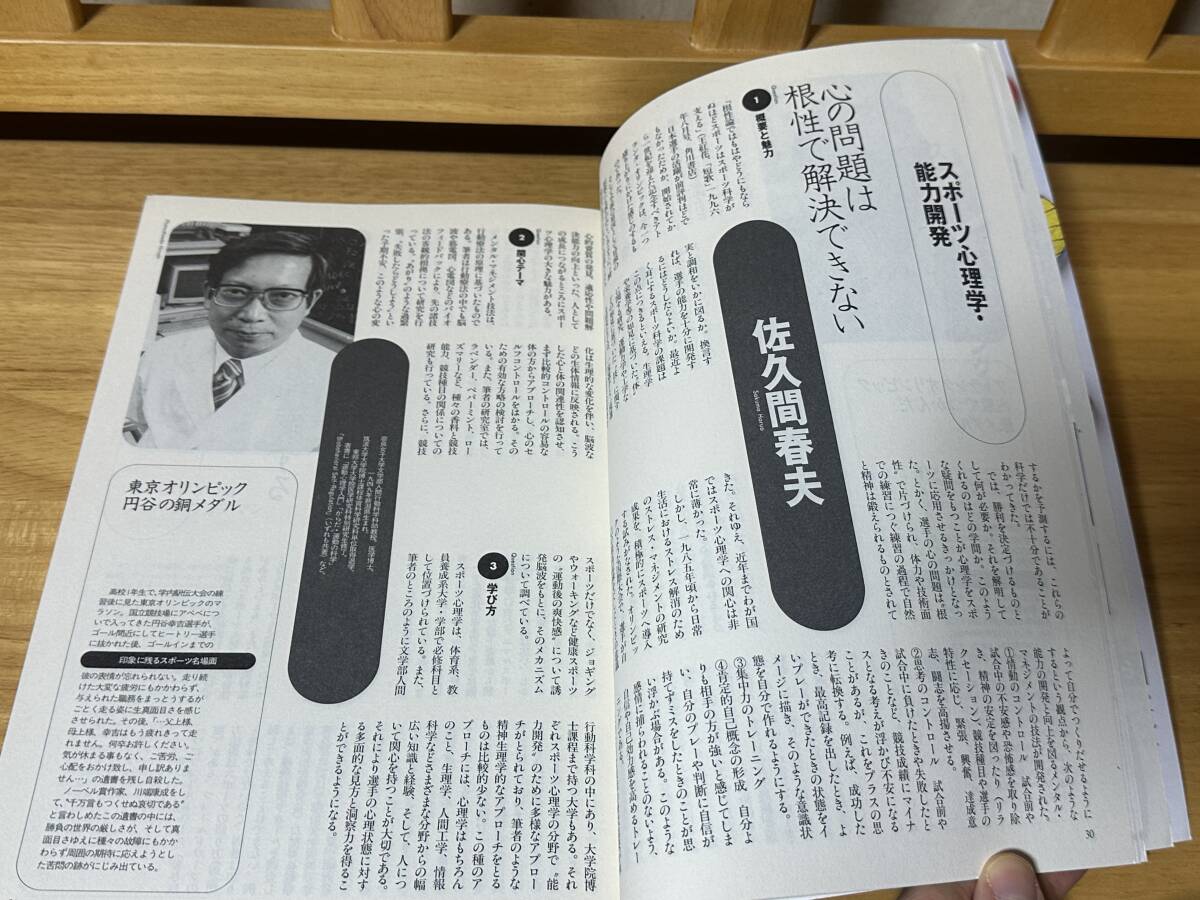 スポーツ心理学・
能力開発
心の問題は
根性で解決できない
佐久間春夫
Sakuma Haruo
Question
1 概要と魅力
『根性論ではもはやどうにもなら
ぬほどスポーツはスポーツ科学が
日本選手の活躍が前評判ほどで
もなかったためか、開始されてか
実と調和をいかに図るか。換言す
れば、選手の能力を十分に開発す
るにはどうしたらよいか。最近よ
く耳にするスポーツ科学の課題は
するかを予測するには、これらの
科学だけでは不十分であることが
わかってきた。
では、勝利を決定づけるものと
して何が必要か。それを解明して
くれるのはどの学問か。このよう
な疑問をもつことが心理学をスポ
ーツに応用させるきっかけとなっ
た。とかく、選手の心の問題は“根
性”で片づけられ、体力や技術面
での練習につぐ練習の過程で自然
と精神は鍛えられるものとされて
きた。それゆえ、近年までわが国
ではスポーツ心理学への関心は非
常に薄かった。
しかし、一九八五年頃から日常
生活におけるストレス解消のため
のストレス・マネジメントの研究
成果を、積極的にスポーツへ導入
よって自分でつくりだせるように
するという観点から、次のような
能力の開発と向上を図るメンタル・
マネジメントの技法が開発された。
①情動のコントロール 試合前や
試合中の不安感や恐怖感を取り除
き、精神の安定を図ったり（リラ
クセーション）、競技種目や選手の
特性に応じ、緊張、興奮、達成意
志、闘志を高揚させる。
②思考のコントロール 試合前や
試合中に負けたときや失敗したと
きのことなど、競技成績にマイナ
スとなる考えが浮かび不安になる
ことがあるが、これをプラスの思
考に転換する。例えば、成功した
とき、最高記録を出したとき、よ
いプレーができたときの状態をイ
メージに描き、そのような意識状
態を自分で作れるようにする。
③集中力のトレーニング
④肯定的自己概念の形成 自分よ
りも相手の方が強いと感じてしま
い、自分のプレーや判断に自信が
持てずミスをしたときのことが思
い浮かぶ場合がある。このような
感情に捕らわれることのないよう、
30
心的資質の発見、適応性や問題解
決能力の向上といった、人として
の成長につながるところにスポー
ツ心理学の大きな魅力がある。
Question
2 関心テーマ
メンタル・マネジメント技法は、
行動療法の原理に基づいたもので
ある。筆者は行動療法の中でも脳
波や筋電図、心電図などのバイオ
フィードバックにより、先の諸技
法の客観的根拠について研究を行
っている。“あがり”のような過緊
張、“失敗したらどうしよう”とい
った予期不安、このような心の変
化は生理的な変化を伴い、脳波な
どの生体情報に反映される。こう
した心と体の関連性を認知させ、
まず比較的コントロールの容易な
体の方からアプローチし、心のセ
ルフコントロールをはかる。その
ための有効な方略の検討を行って
いる。また、筆者の研究室では、
ラベンダー、ペパーミント、ロー
ズマリーなど、種々の香料と競技
能力、競技種目の関係についての
研究も行っている。さらに、競技
スポーツだけでなく、ジョギング
やウォーキングなど健康スポーツ
の“運動後の爽快感”について誘
発脳波をもとに、そのメカニズム
について調べている。
Question
3 学び方
スポーツ心理学は、体育系、教
員養成系大学・学部で必修科目と
して位置づけられている。また、
筆者のところのように文学部人間
行動科学科の中にあり、大学院博
士課程まで持つ大学もある。それ
ぞれスポーツ心理学の分野で“能
力開発”のために多様なアプロー
チがとられており、筆者のような
精神生理学的なアプローチをとる
ものは比較的少ない。この種のア
プローチには、心理学はもちろん
のこと、生理学、人間工学、情報
科学などさまざまな分野からの幅
広い知識と経験、そして、人につ
いて関心を持つことが大切である。
それにより選手の心理状態に対す
る多面的な見方と洞察力を得るこ
とができるようになる。
東京オリンピック
円谷の銅メダル
高校1年生で、学内駅伝大会の練
習後に見た東京オリンピックのマ
ラソン。国立競技場にアベベにつ
いで入ってきた円谷幸吉選手が、
ゴール間近にしてヒートリー選手
に抜かれた後、ゴールインまでの
印象に残るスポーツ名場面
彼の表情が忘れられない。走り続
けた大変な疲労にもかかわらず、
与えられた職務をまっとうするが
ごとく走る姿に生真面目さを感じ
させられた。その後、「…父上様、
母上様、幸吉はもう疲れきって走
れません。何卒お許しください。
気が休まる事もなく、ご苦労、ご
心配をおかけ致し、申し訳ありま
せん…」の遺書を残し自殺した。
ノーベル賞作家、川端康成をし
て、“千万言もつくせぬ哀切である”
と言わしめたこの遺書の中には、
勝負の世界の厳しさが、そして真
面目さゆえに種々の故障にもかか
わらず周囲の期待に応えようとし
た苦悶の跡がにじみ出ている。